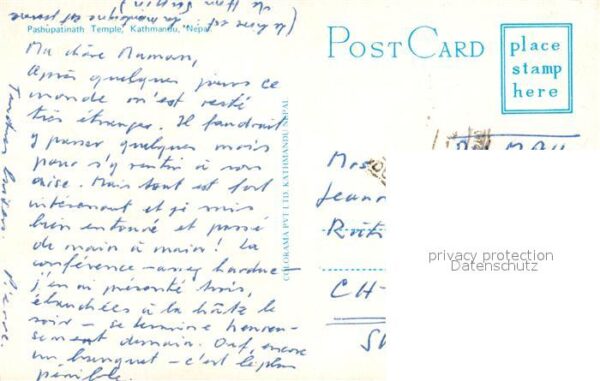 Pashupatinath Temple, Kathmandu, Nepal
Ma chère Maman,
Après quelques jours ce
monde m'est resté
très étranger. Il faudrait
y passer quelques mois
pour s'y sentir à son
aise. Mais tout est fort
intéressant et je suis
bien entouré et passé
de main à main! La
conférence – assez hardue –
j'en ai présenté trois,
ébauchées à la hâte le
soir – se termine heureu-
sement demain. Ouf, encore
un banquet – c'est le plus
pénible.
Pierre.
COLORAMA PVT LTD. KATHMANDU-NEPAL
POST CARD
place
stamp
here
Mrs
Jeann
CH-
privacy protection
Datenschutz